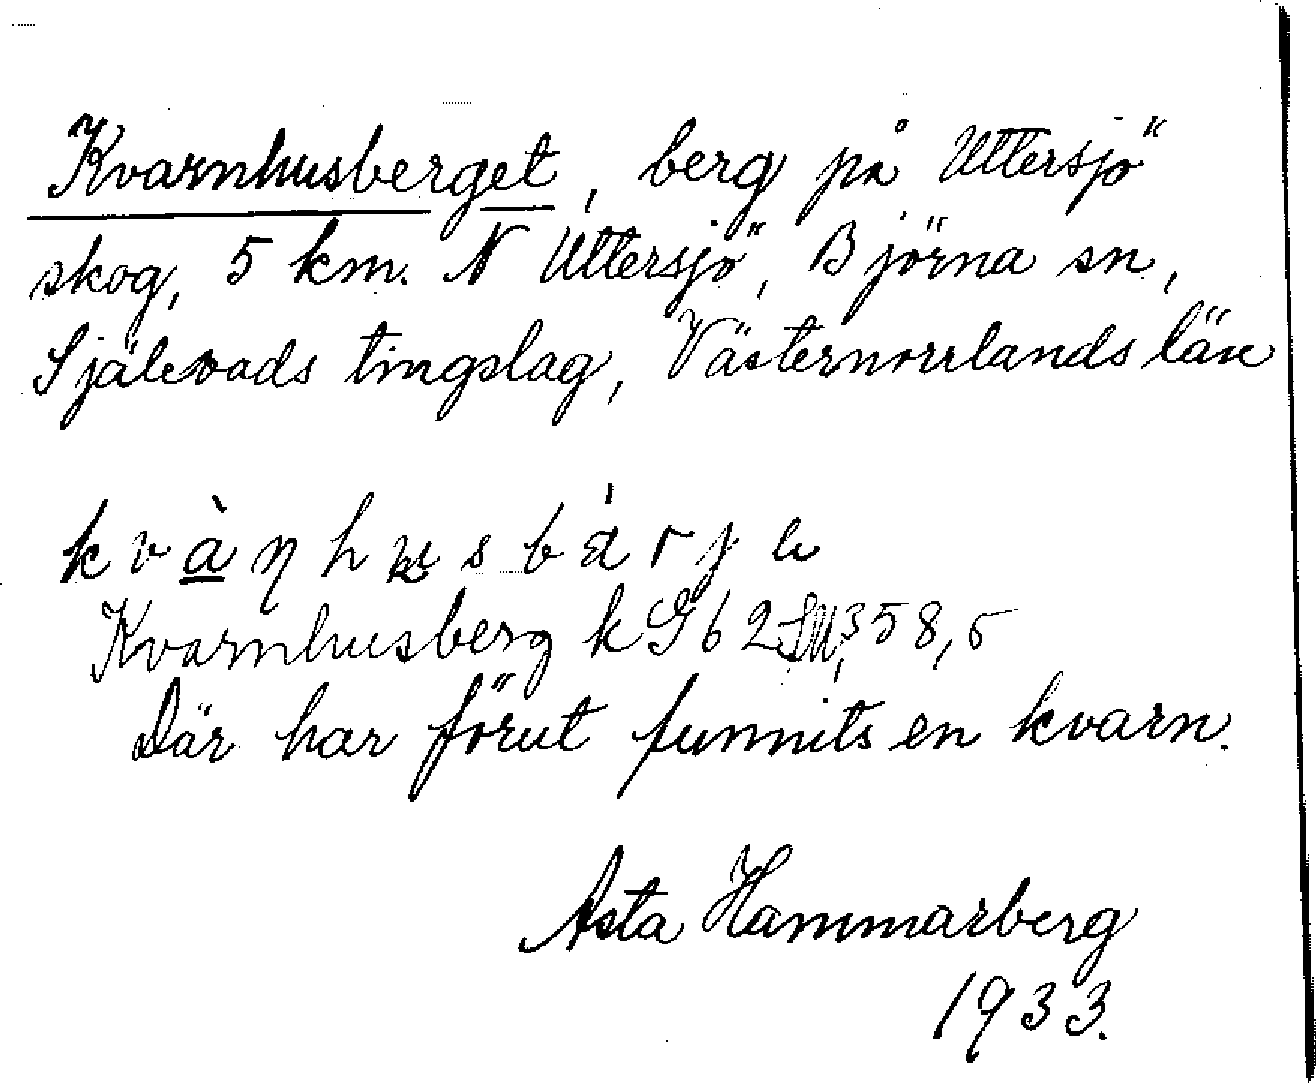 Kvarnhusberget, berg på Uttersjö
skog, 5 km. N Uttersjö, Björna sn,
Själevads tingslag, Västernorrlands län
kvàŋhusbä́rje
Kvarnhusberg k G 62 358,5
Där har förut funnits en kvarn.
Asta Hammarberg
1933.